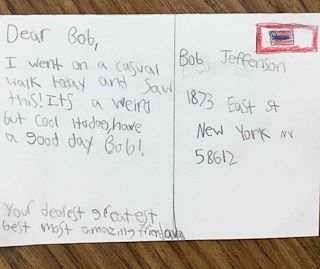 Dear Bob,
I went on a casual
walk today and saw
this! Its a weird
but cool
have
a good day Bob!
Your dearest greatest
best most amazing
Bob Jeffenson
1873 East st
New York NY
58612